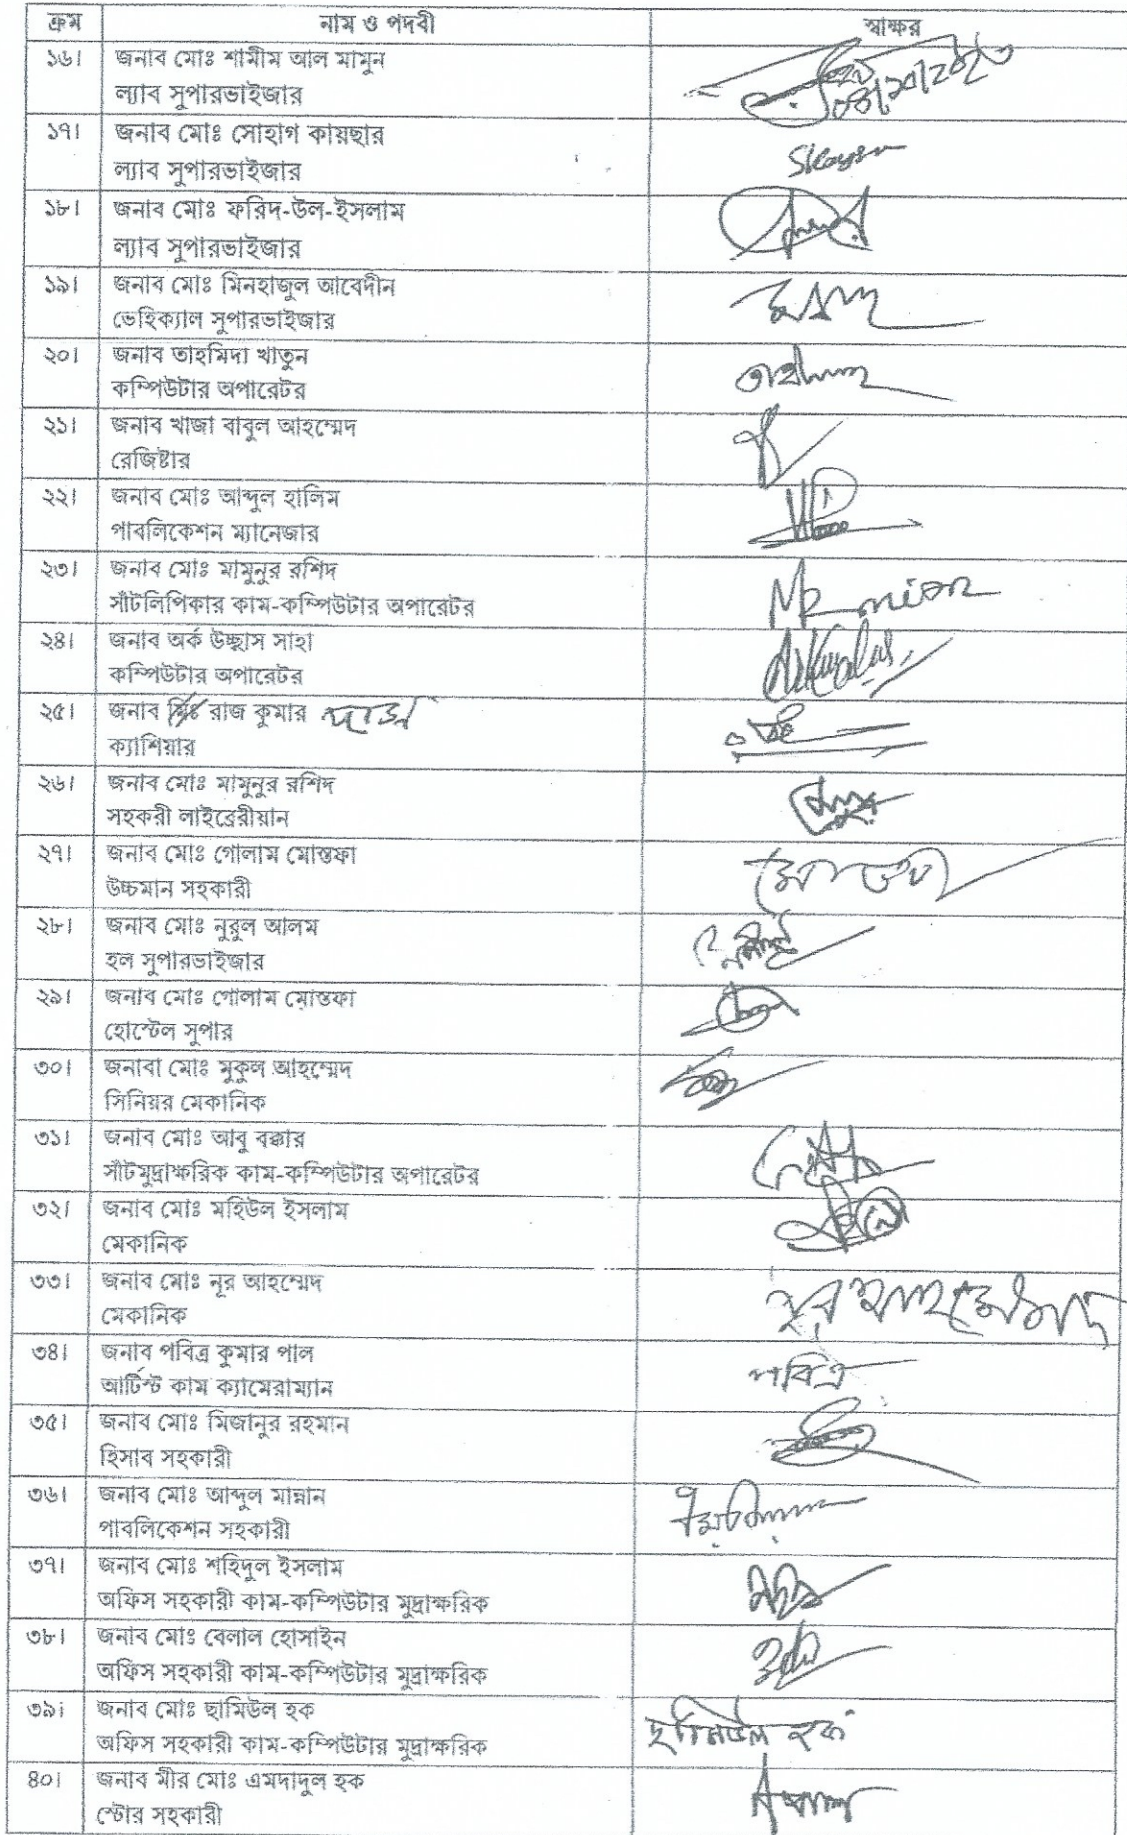 ক্রম নাম ও পদবী স্বাক্ষর
১৬। জনাব মোঃ শামীম আল মামুন
ল্যাব সুপারভাইজার
১৭। জনাব মোঃ সোহাগ কায়ছার
ল্যাব সুপারভাইজার
১৮। জনাব মোঃ ফরিদ-উল-ইসলাম
ল্যাব সুপারভাইজার
১৯। জনাব মোঃ মিনহাজুল আবেদীন
ভেহিক্যাল সুপারভাইজার
২০। জনাব তাহমিদা খাতুন
কম্পিউটার অপারেটর
২১। জনাব খাজা বাবুল আহম্মেদ
রেজিষ্টার
২২। জনাব মোঃ আব্দুল হালিম
পাবলিকেশন ম্যানেজার
২৩। জনাব মোঃ মামুনুর রশিদ
সাঁটলিপিকার কাম-কম্পিউটার অপারেটর
২৪। জনাব অর্ক উচ্ছাস সাহা
কম্পিউটার অপারেটর
২৫। জনাব রাজ কুমার দাস
ক্যাশিয়ার
২৬। জনাব মোঃ মামুনুর রশিদ
সহকরী লাইব্রেরীয়ান
২৭। জনাব মোঃ গোলাম মোস্তফা
উচ্চমান সহকারী
২৮। জনাব মোঃ নুরুল আলম
হল সুপারভাইজার
২৯। জনাব মোঃ গোলাম মোস্তফা
হোস্টেল সুপার
৩০। জনাবা মোঃ মুকুল আহম্মেদ
সিনিয়র মেকানিক
৩১। জনাব মোঃ আবু বক্কার
সাঁটমুদ্রাক্ষরিক কাম-কম্পিউটার অপারেটর
৩২। জনাব মোঃ মহিউল ইসলাম
মেকানিক
৩৩। জনাব মোঃ নূর আহম্মেদ
মেকানিক
৩৪। জনাব পবিত্র কুমার পাল পবিত্র
আর্টিস্ট কাম ক্যামেরাম্যান
৩৫। জনাব মোঃ মিজানুর রহমান
হিসাব সহকারী
৩৬। জনাব মোঃ আব্দুল মান্নান
পাবলিকেশন সহকারী
৩৭। জনাব মোঃ শহিদুল ইসলাম
অফিস সহকারী কাম-কম্পিউটার মুদ্রাক্ষরিক
৩৮। জনাব মোঃ বেলাল হোসাইন
অফিস সহকারী কাম-কম্পিউটার মুদ্রাক্ষরিক
৩৯। জনাব মোঃ ছামিউল হক ছামিউল হক
অফিস সহকারী কাম-কম্পিউটার মুদ্রাক্ষরিক
৪০। জনাব মীর মোঃ এমদাদুল হক
স্টোর সহকারী